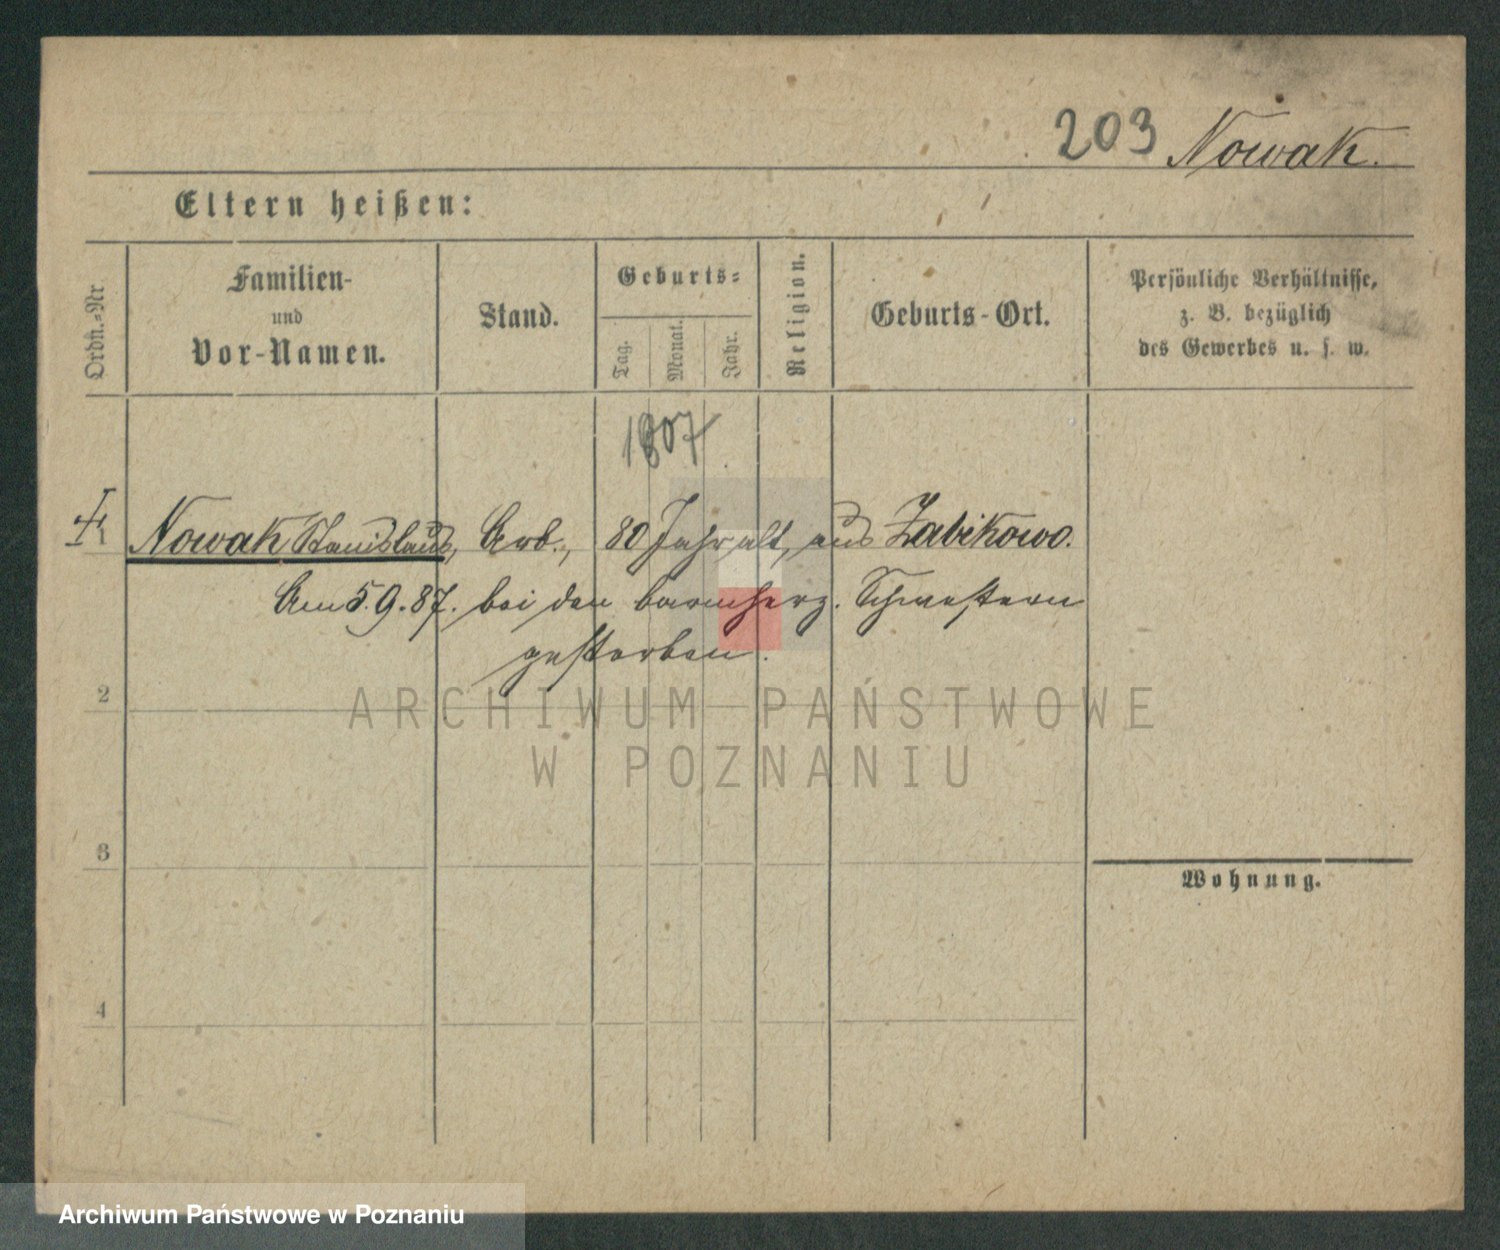 203 Nowak.
Eltern heißen:
Ordn.-Nr
Familien-
und
Vor-Namen.
Stand.
Geburts-
Tag.
Monat.
Jahr.
Religion.
Geburts-Ort.
Persönliche Verhältnisse,
z. B. bezüglich
des Gewerbes u. s. w.
1807
1 Nowak Stanislaus, Arb., 80 Jahr alt, aus Zabikowo.
Am 5.9.87. bei den barmherz. Schwestern
gestorben.
2
ARCHIWUM PAŃSTWOWE
W POZNANIU
3
Wohnung.
4
Archiwum Państwowe w Poznaniu